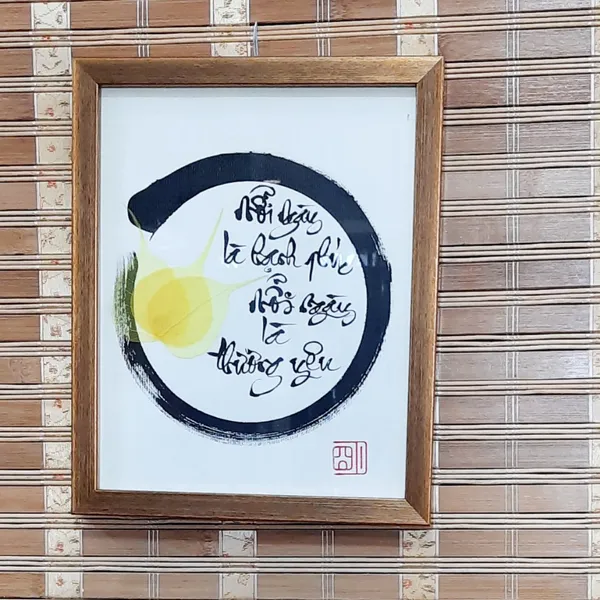 mỗi ngày
là hạnh phúc
mỗi ngày
là
thương yêu